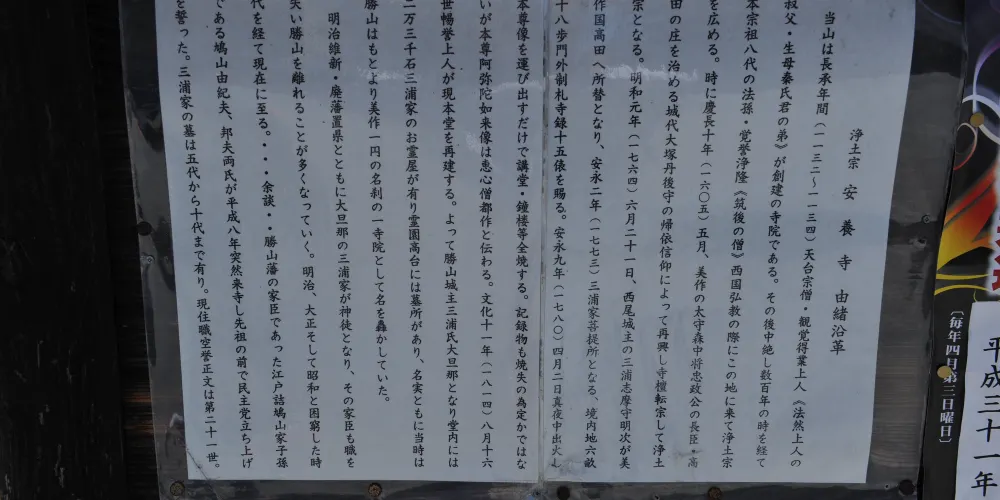 浄土宗 安養寺 由緒沿革
当山は長承年間（一一三二～一一三四）天台宗僧・観覚得業上人《法然上人の
叔父・生母秦氏君の弟》が創建の寺院である。その後中絶し数百年の時を経て
本宗祖八代の法孫・覚誉浄隆《筑後の僧》西国弘教の際にこの地に来て浄土宗
を広める。時に慶長十年（一六〇五）五月、美作の太守森中将忠政公の長臣・高
田の庄を治める城代大塚丹後守の帰依信仰によって再興し寺檀転宗して浄土
宗となる。明和元年（一七六四）六月二十一日、西尾城主の三浦志摩守明次が美
作国高田へ所替となり、安永二年（一七七三）三浦家菩提所となる、境内地六畝
十八歩門外制札寺録十五俵を賜る。安永九年（一七八〇）四月二日真夜中出火し
本尊像を運び出すだけで講堂・鐘楼等全焼する。記録物も焼失の為定かではな
いが本尊阿弥陀如来像は恵心僧都作と伝わる。文化十一年（一八一四）八月十六
世暢誉上人が現本堂を再建する。よって勝山城主三浦氏大旦那となり堂内には
二万三千石三浦家のお霊屋が有り霊園高台には墓所があり、名実ともに当時は
勝山はもとより美作一円の名刹の一寺院として名を轟かしていた。
明治維新・廃藩置県とともに大旦那の三浦家が神徒となり、その家臣も職を
失い勝山を離れることが多くなっていく。明治、大正そして昭和と困窮した時
代を経て現在に至る。・・・余談・・勝山藩の家臣であった江戸詰鳩山家子孫
である鳩山由紀夫、邦夫両氏が平成八年突然来寺し先祖の前で民主党立ち上げ
を誓った。三浦家の墓は五代から十代まで有り。現住職空誉正文は第二十一世。
〔毎年四月第三日曜日〕
平成三十一年